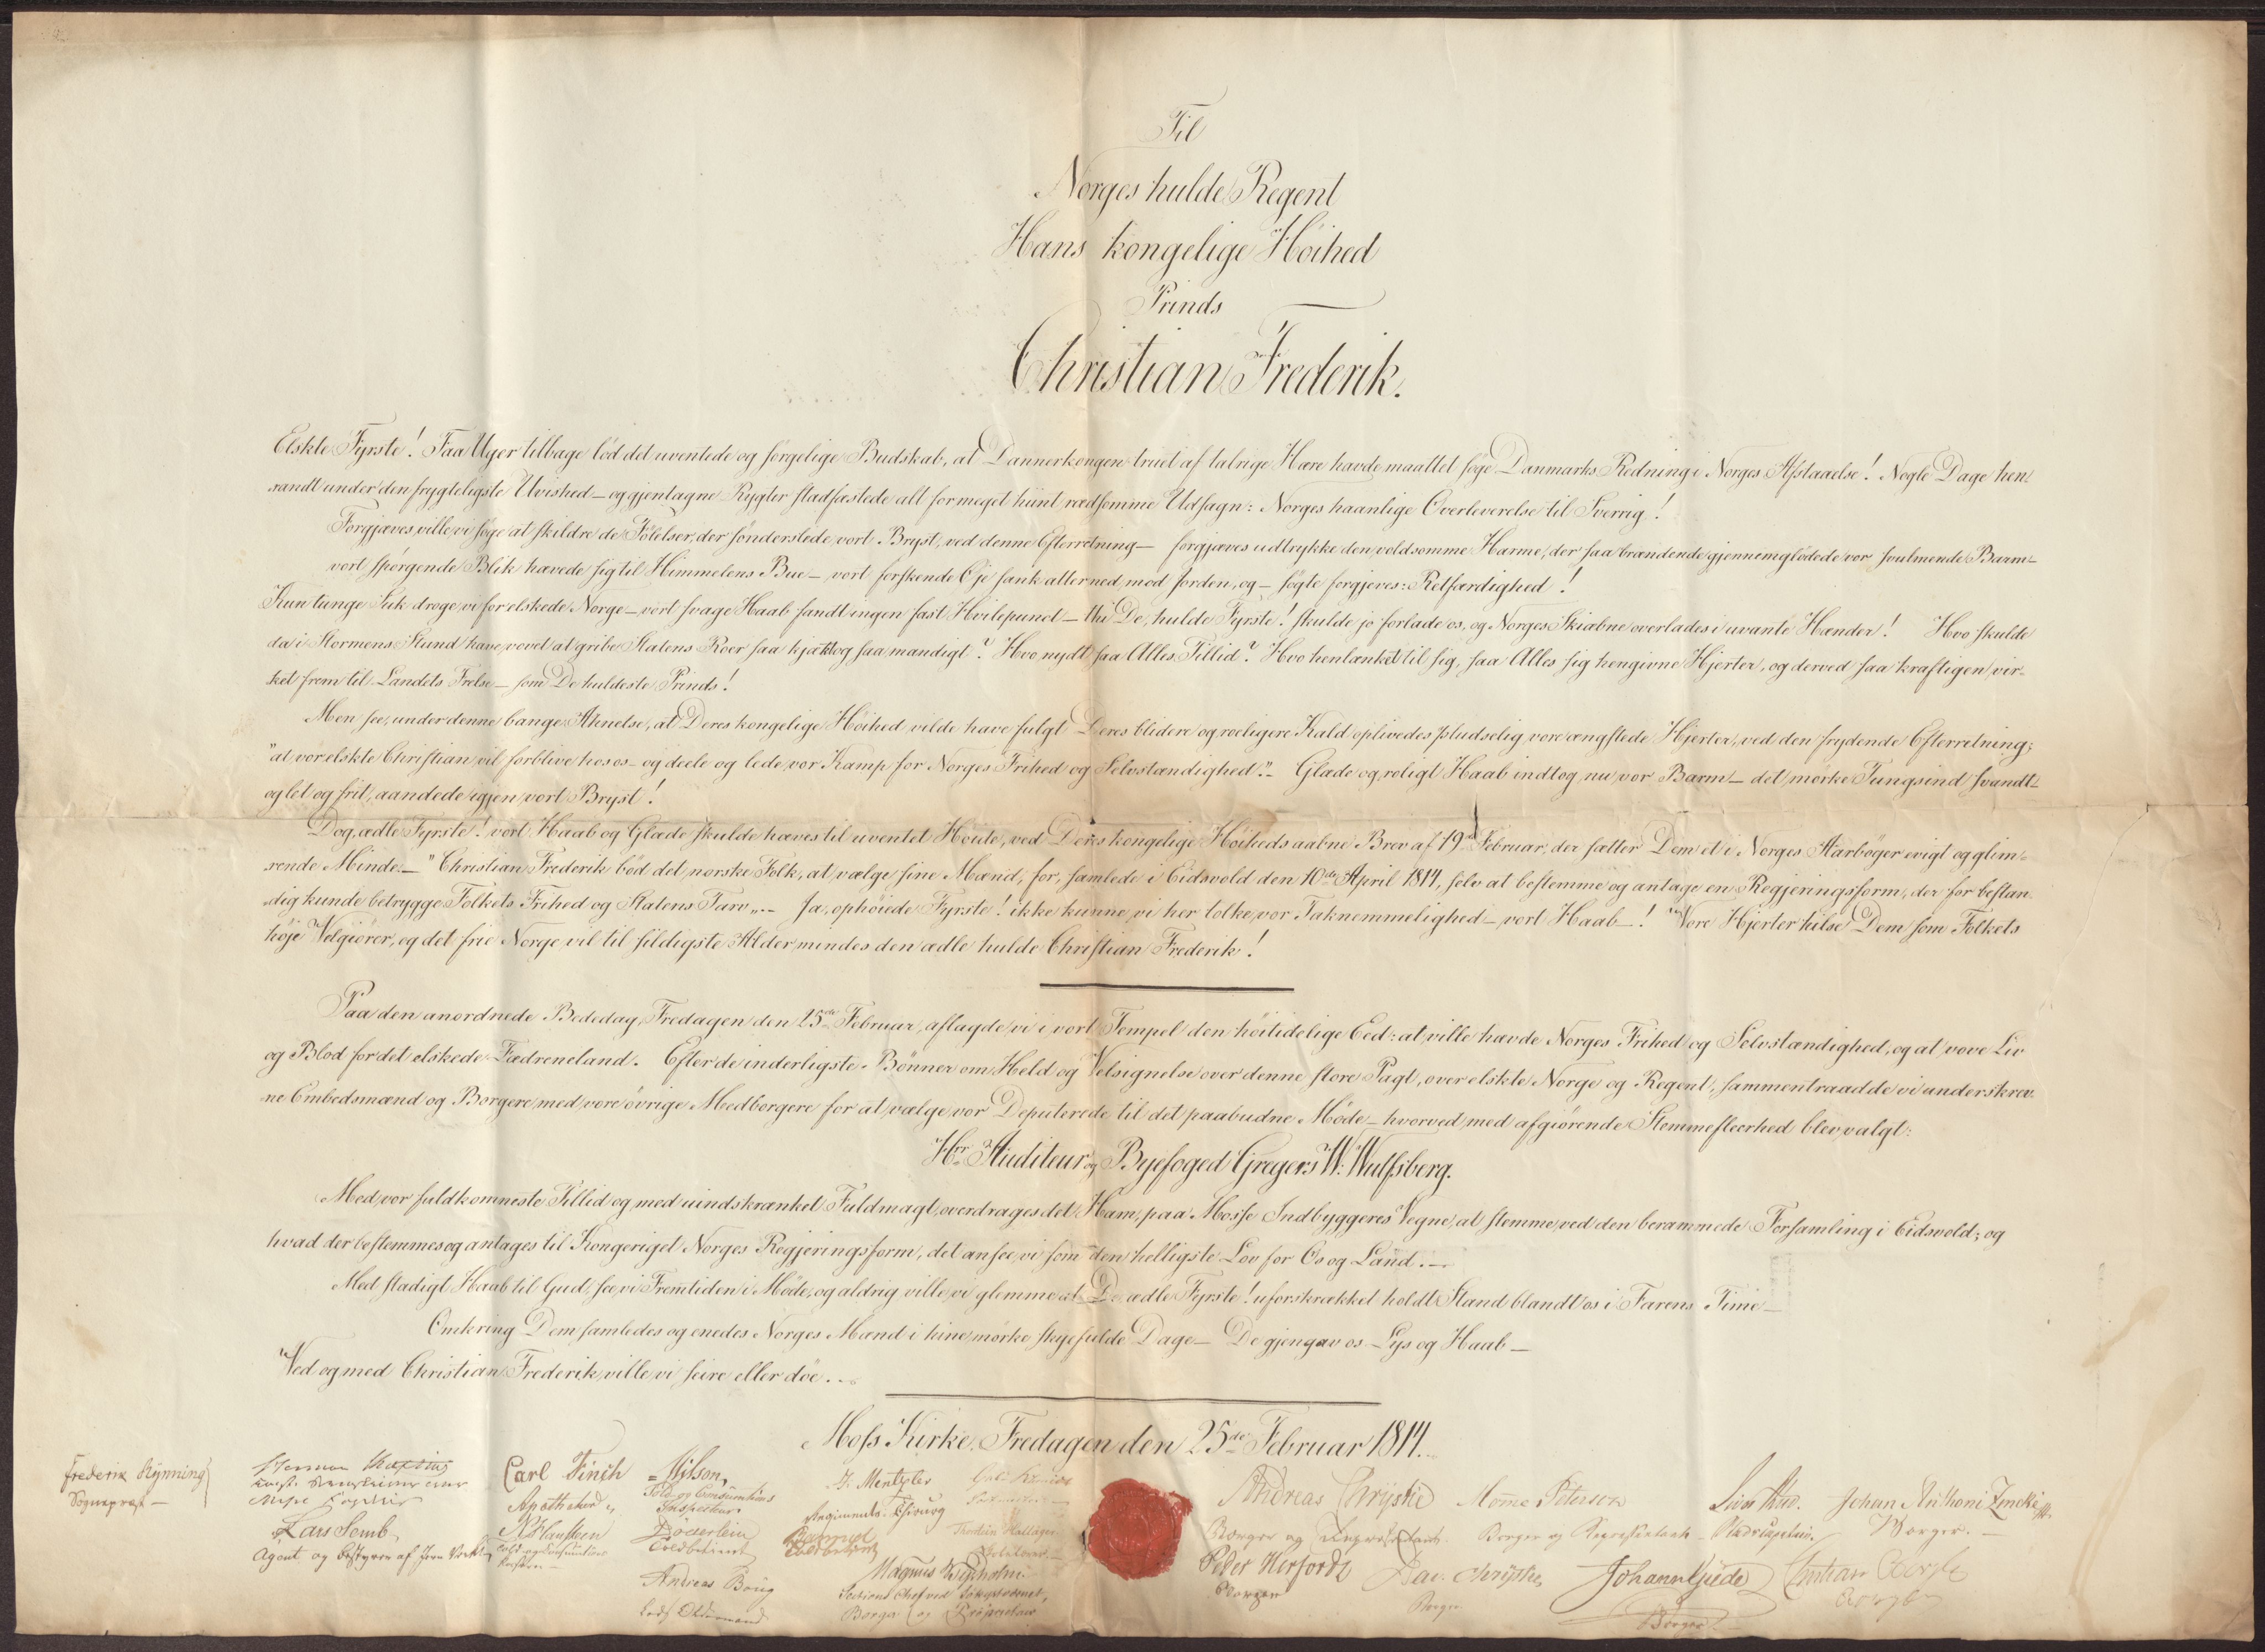 Til
Norges hulde Regent
Hans kongelige Höihed
Prinds
Christian Frederik.
Elskte Fyrste! Faa Uger tilbage löd det uventede og sørgelige Budskab, at Dannerkongen truet af talrige Hære havde maattet søge Danmarks Redning i Norges Afstaaelse! Nogle Dage hen-
randt under den frygteligste Uvished – og gjentagne Rygter stadfæstede alt for meget hiint rædsomme Udsagn: Norges haanlige Overleverelse til Sverrig!
Forgjæves ville vi søge at skildre de Følelser, der sønderslede vort Bryst, ved denne Efterretning – forgjæves udtrykke den voldsomme Harme, der saa brændende gjennemglödede vor svulmende Barm –
vort spörgende Blik hævede sig til Himmelens Bue – vort forskende Öje sank atter ned mod Jorden, og – søgte forgjeves: Retfærdighed!
Kun tunge Suk droge vi for elskede Norge – vort svage Haab fandt ingen fast Hvilepunct – thi De, hulde Fyrste! skulde jo forlade os, og Norges Skiæbne overlades i uvante Hænder! Hvo skulde
da i Stormens Stund have vovet at gribe Statens Roer saa kjækt og saa mandigt? Hvo nydt saa Alles Tillid? Hvo henlænket til sig, saa Alles sig hengivne Hjerter, og derved saa kraftigen vir-
ket frem til Landets Frelse – som De huldeste Prinds!
Men see, under denne bange Ahnelse, at Deres kongelige Höihed vilde have fulgt Deres blidere og roeligere Kald oplivedes pludselig vore ængstede Hjerter, ved den frydende Efterretning;
"at vor elskte Christian vil forblive hos os – og deele og lede vor Kamp for Norges Frihed og Selvstændighed." – Glade og roligt Haab indtog nu vor Barm – det mörke Tungsind svandt –
og let og frit, aandede igjen vort Bryst!
Dog, ædle Fyrste! vort Haab og Glæde skulde hæves til uventet Höide, ved Deres kongelige Höiheds aabne Brev af 19de Februar, der sætter Dem et i Norges Aarböger evigt og glim-
rende Minde. – "Christian Frederik böd det norske Folk, at vælge sine Mænd, for, samlede i Eidsvold den 10de April 1814, selv at bestemme og antage en Regjeringsform, der for bestan-
dig kunde betrygge Folkets Frihed og Statens Tarv„ – Ja, ophöiede Fyrste! ikke kunne vi her tolke vor Taknemmelighed – vort Haab –! Vore Hjerter hilse Dem som Folkets
höje Velgiörer, og det frie Norge vil til sildigste Alder mindes den ædle hulde Christian Frederik!
Paa den anordnede Bededag, Fredagen den 25de Februar, aflagde vi i vort Tempel den höitidelige Eed: at ville hævde Norges Frihed og Selvstændighed, og at vove Liv
og Blod for det elskede Fædreneland. Efter de inderligste Bönner om Held og Velsignelse over denne store Pagt, over elskte Norge og Regent, sammentraadde vi underskrev-
ne Embedsmænd og Borgere med vore övrige Medborgere for at vælge vor Deputerede til det paabudne Möde – hvorved med afgiörende Stemmefleerhed blev valgt:
Hrr Auditeur og Byefoged Gregers W: Wulfsberg.
Med vor fuldkomneste Tillid og med uindskrænket Fuldmagt, overdrages det Ham, paa Mosse Indbyggeres Vegne, at stemme, ved den berammede Forsamling i Eidsvold; og
hvad der bestemmes og antages til Kongeriget Norges Regjeringsform, det ansee vi som den helligste Lov for Os og Land. –
Med stadigt Haab til Gud, see vi Fremtiden i Möde, og aldrig ville vi glemme at De, ædle Fyrste! uforskrækket holdt Stand blandt os i Farens Time –
Omkring Dem samledes og enedes Norges Mænd i hine mörke skyefulde Dage – De gjengav os Lys og Haab –
Ved og med Christian Frederik ville vi seire eller döe. –
Moss Kirke, Fredagen den 25de Februar 1814.
Frederik Rynning
Sognepræst –
Lars Semb
Agent og bestyrer af Jern Værket
Carl Finch
Apotheker
Told- og Consumtions
Kasserer –
Nilson,
Told og Consumtions
Inspecteur.
Toldbetient
Andreas Boug
Lods Oldermand
F. Mentzler
Regiments Chirurg
Toldbetient
Magnus Wesholm
Borger og
Andreas Chrystie
Borger og Repræsentant.
Peder Herfordt
Borger
Mome Peterson
Borger og Repræsentant –
Dav. Chrystie
Borger
Stadscapitain.
Johan Gude
Borger
Johan Anthoni Zincke
Borger. –
Christian
Borger